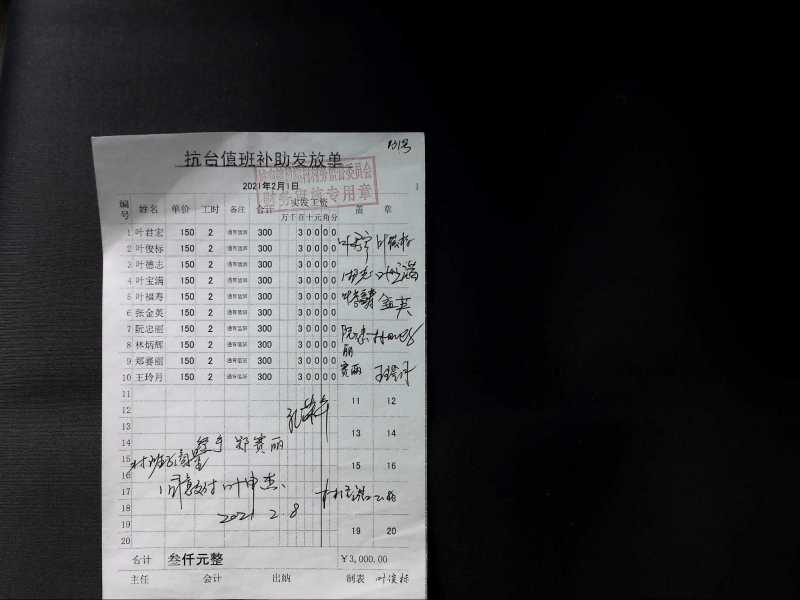 抗台值班补助发放单
2021年2月1日
财务班旅专用章
编号 姓名 单价 工时 备注 合计 实发工资 盖 章
万千百十元角分
1 叶君宏 150 2 通宵值班 300 30000
2 叶俊标 150 2 通宵值班 300 30000
3 叶德志 150 2 通宵值班 300 30000
4 叶宝满 150 2 通宵值班 300 30000
5 叶福寿 150 2 通宵值班 300 30000
6 张金英 150 2 通宵值班 300 30000 金英
7 阮忠丽 150 2 通宵值班 300 30000 阮忠丽
8 林炳辉 150 2 通宵值班 300 30000
9 郑赛丽 150 2 通宵值班 300 30000 赛丽
10 王玲月 150 2 通宵值班 300 30000
11 11 12
12
13 13 14
14 经手 郑赛丽
15 15 16
16
17 同意支付 叶申杰
18 2021 2.8
19 19 20
20
合计 叁仟元整 ¥3,000.00
主任 会计 出纳 制表 叶俊标